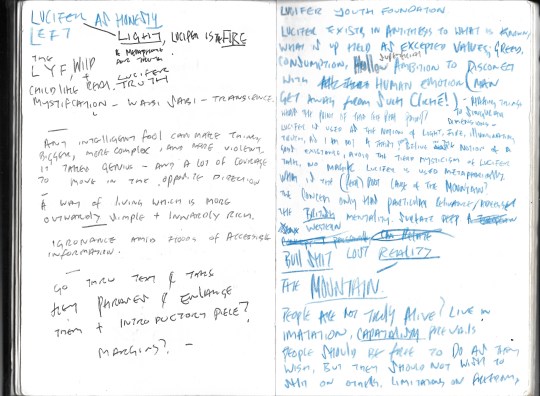 LUCIFER AS HONESTY
LEFT
LIGHT, LUCIFER IS A FIRE
A METAPHOR
FOR TRUTH
THE LUCIFER
LYF, WILD +
CHILD LIKE READ. TRUTH
MYSTIFICATION - WABI SABI - TRANSIENCE.
ANY INTELLIGENT FOOL CAN MAKE THINGS
BIGGER, MORE COMPLEX, AND MORE VIOLENT.
IT TAKES GENIUS - AND A LOT OF COURAGE
TO MOVE IN THE OPPOSITE DIRECTION
A WAY OF LIVING WHICH IS MORE
OUTWARDLY SIMPLE + INWARDLY RICH.
IGRONANCE AMID FLOOD OF ACCESSIBLE
INFORMATION.
GO THRU TEXT & TAKE
KEY PHRASES & ENLARGE
THEM + INTRODUCTORY PIECE?
MARGINS? -
LUCIFER YOUTH FOUNDATION
LUCIFER EXISTS IN ANTITHESIS TO WHAT IS KNOWN,
WHAT IS UP HELD AS EXCEPTED VALUES; GREED,
CONSUMPTION, HOLLOW AMBITION TO DISCONNECT
WITH HUMAN EMOTION (MAN
GET AWAY FROM SUCH CLICHÉ!) -
WHAT THE POINT OF THE
LUCIFER IS USED AS THE NOTION OF LIGHT, FIRE, ILLUMINATION,
TRUTH, NO I AM NOT A NOTION OF A
EXISTENCE, AVOID THE MYSTICISM OF LUCIFER
LUCIFER IS USED METAPHORICALLY.
WHAT IS THE (FEAR) ROOT CAUSE OF THE MOUNTAIN?
THE CONTEXT ONLY HAS PARTICULAR RELEVANCE/
THE BRITISH MENTALITY. SURFACE DEEP
WESTERN
BULL SHIT LOST REALITY
THE MOUNTAIN.
PEOPLE ARE NOT TRULY ALIVE? LIVE IN
IMATATION, CAPATALISM PREVAILS
PEOPLE SHOULD BE FREE TO DO AS THEY
WISH, BUT THEY SHOULD NOT WISH TO
SHIT ON OTHERS, LIMITATIONS ON FREEDOM,